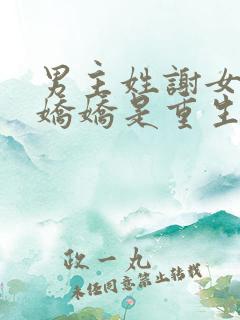 男主姓謝女
嬌嬌是重生
政一丸
未经同意禁止转载